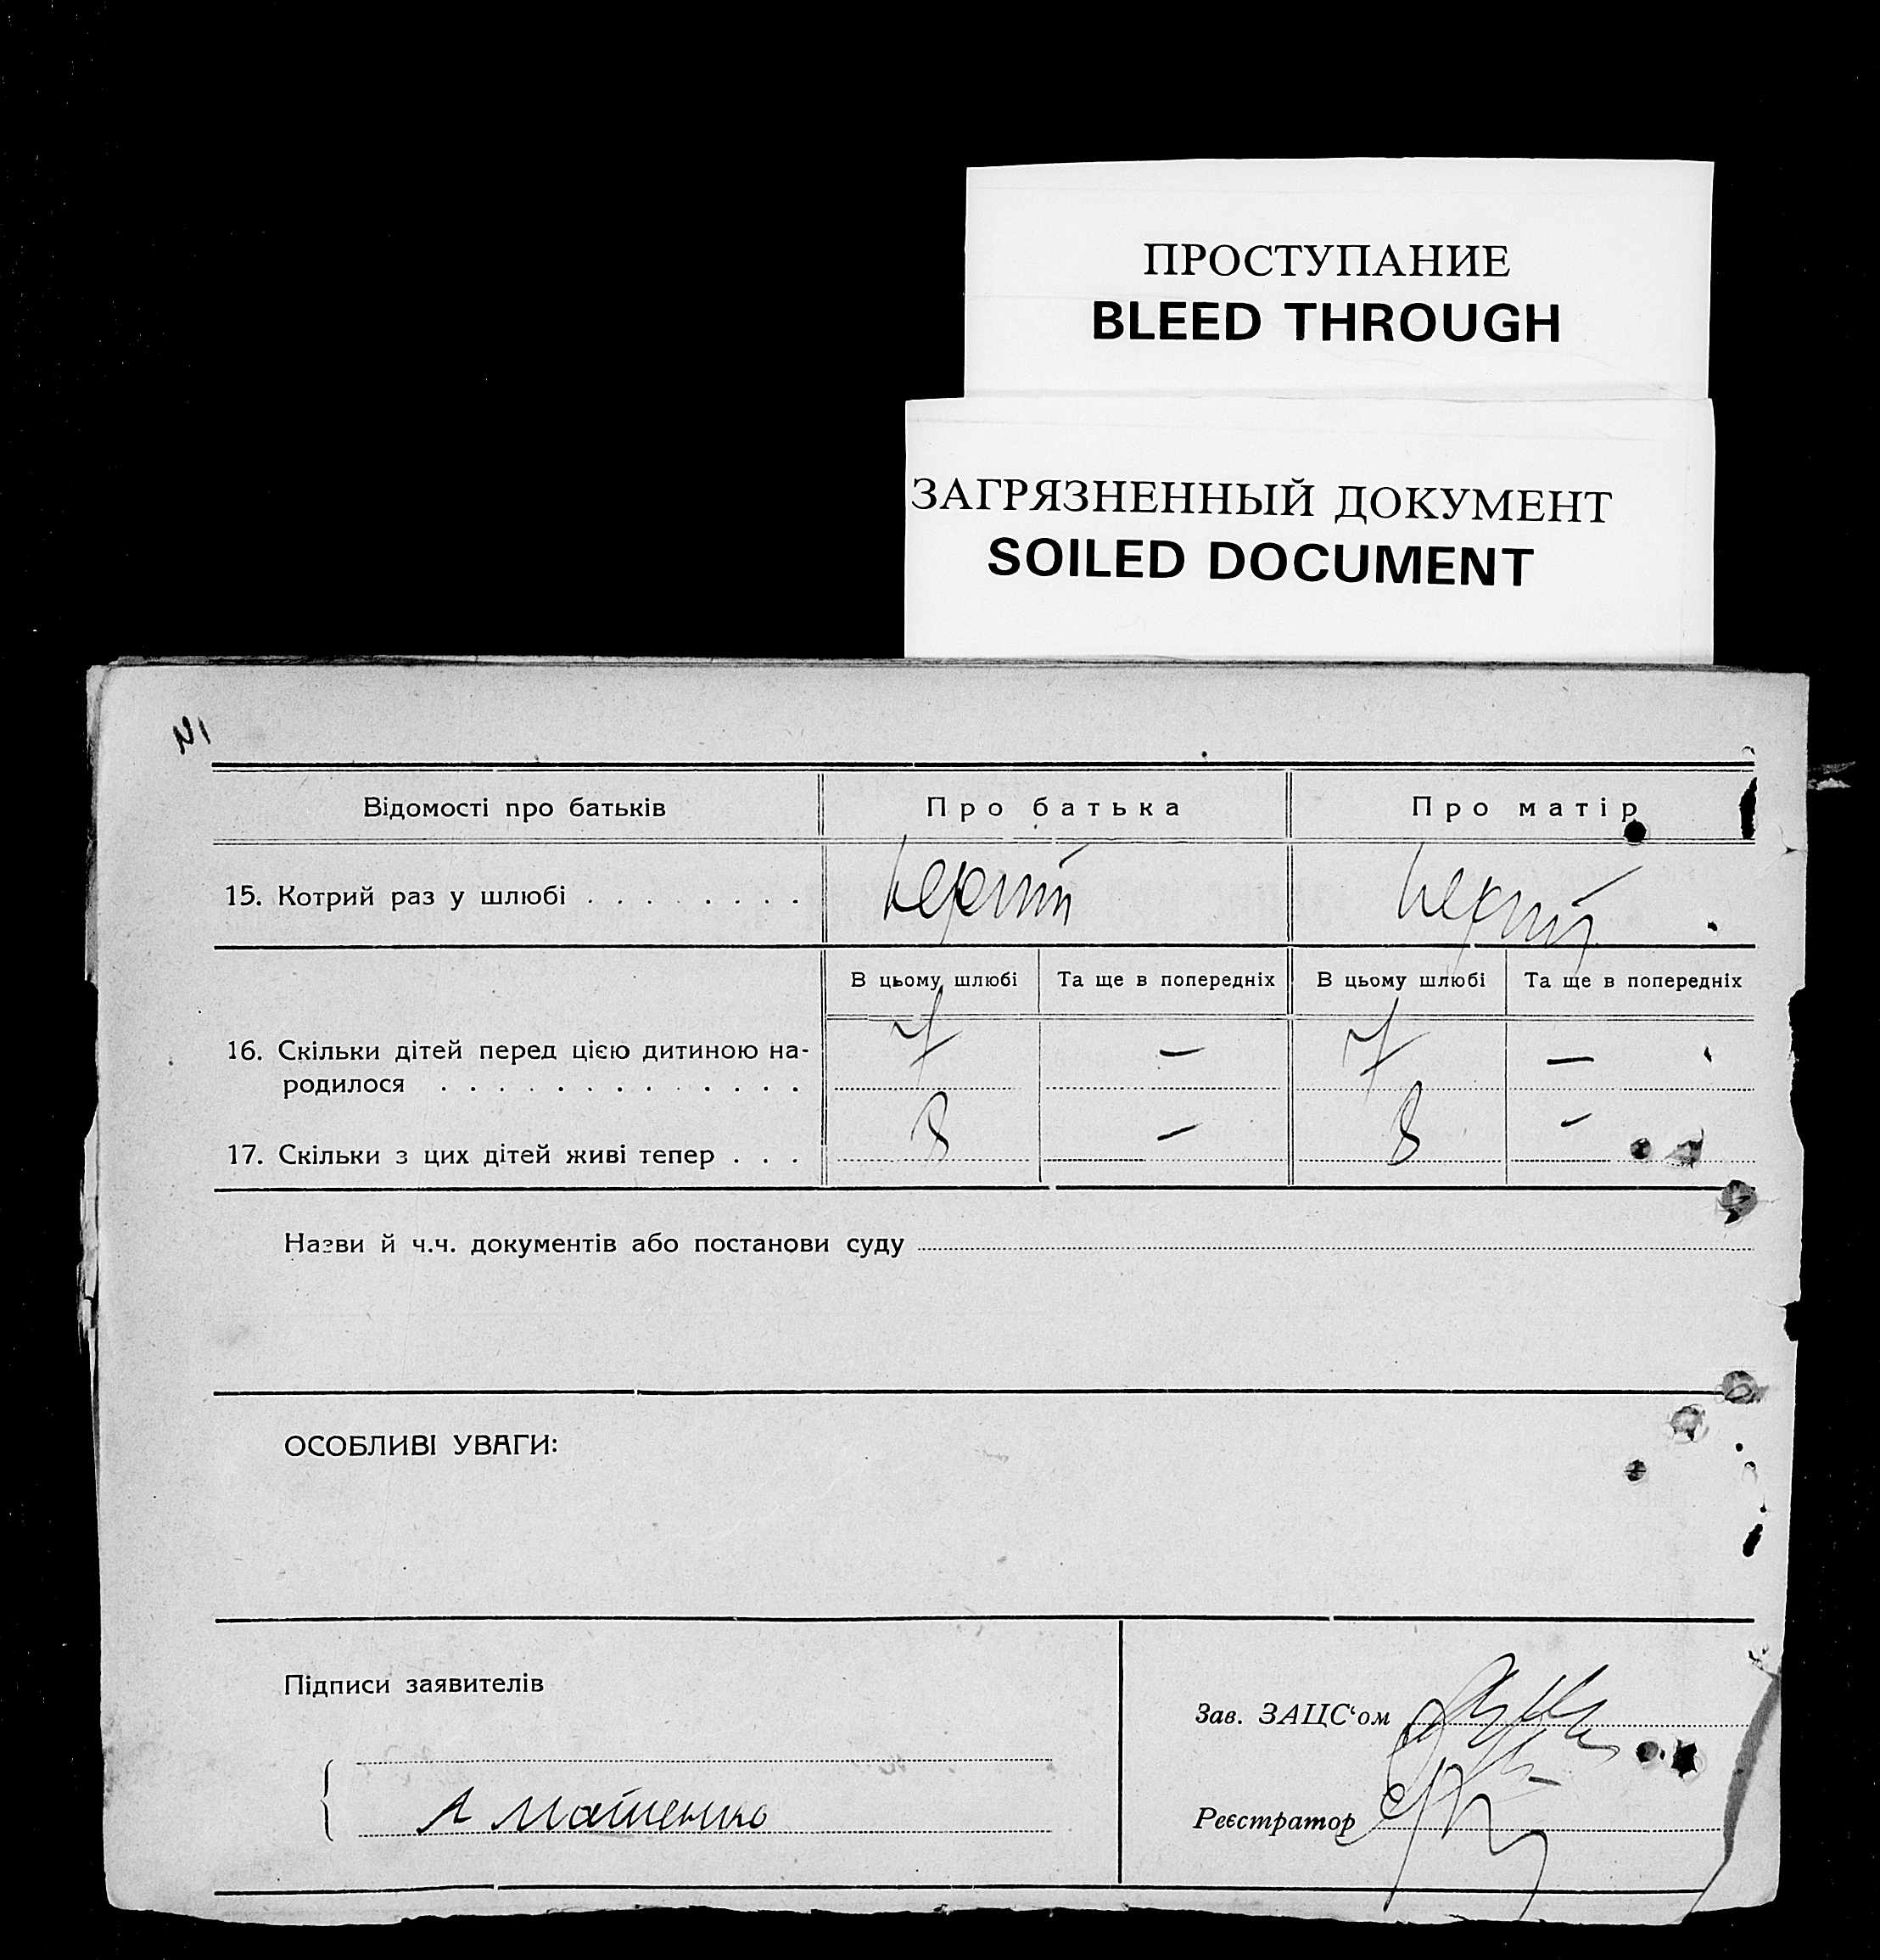 ПРОСТУПАНИЕ
BLEED THROUGH
ЗАГРЯЗНЕННЫЙ ДОКУМЕНТ
SOILED DOCUMENT
Відомості про батьків Про батька Про матір
15. Котрий раз у шлюбі . . . . . . . . перший перший
В цьому шлюбі Та ще в попередніх В цьому шлюбі Та ще в попередніх
16. Скільки дітей перед цією дитиною на-
родилося . . . . . . . . . . . . . 7 — 7 —
17. Скільки з цих дітей живі тепер . . . 8 — 8 —
Назви й ч.ч. документів або постанови суду
ОСОБЛИВІ УВАГИ:
Підписи заявителів
Зав. ЗАЦС‘ом
А
Реєстратор